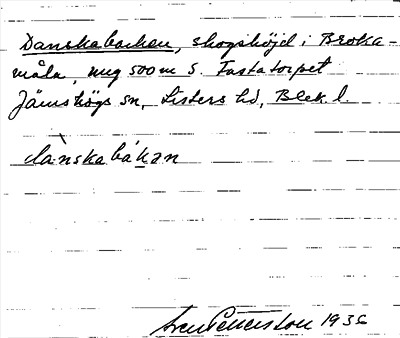 Danskabacken, skogshöjd i Broka-
måla, ung 500 m S. Fastatorpet
Jämshögs sn, Listers hd, Blek. l.
dànskabákan
Sven Pettersson 1936